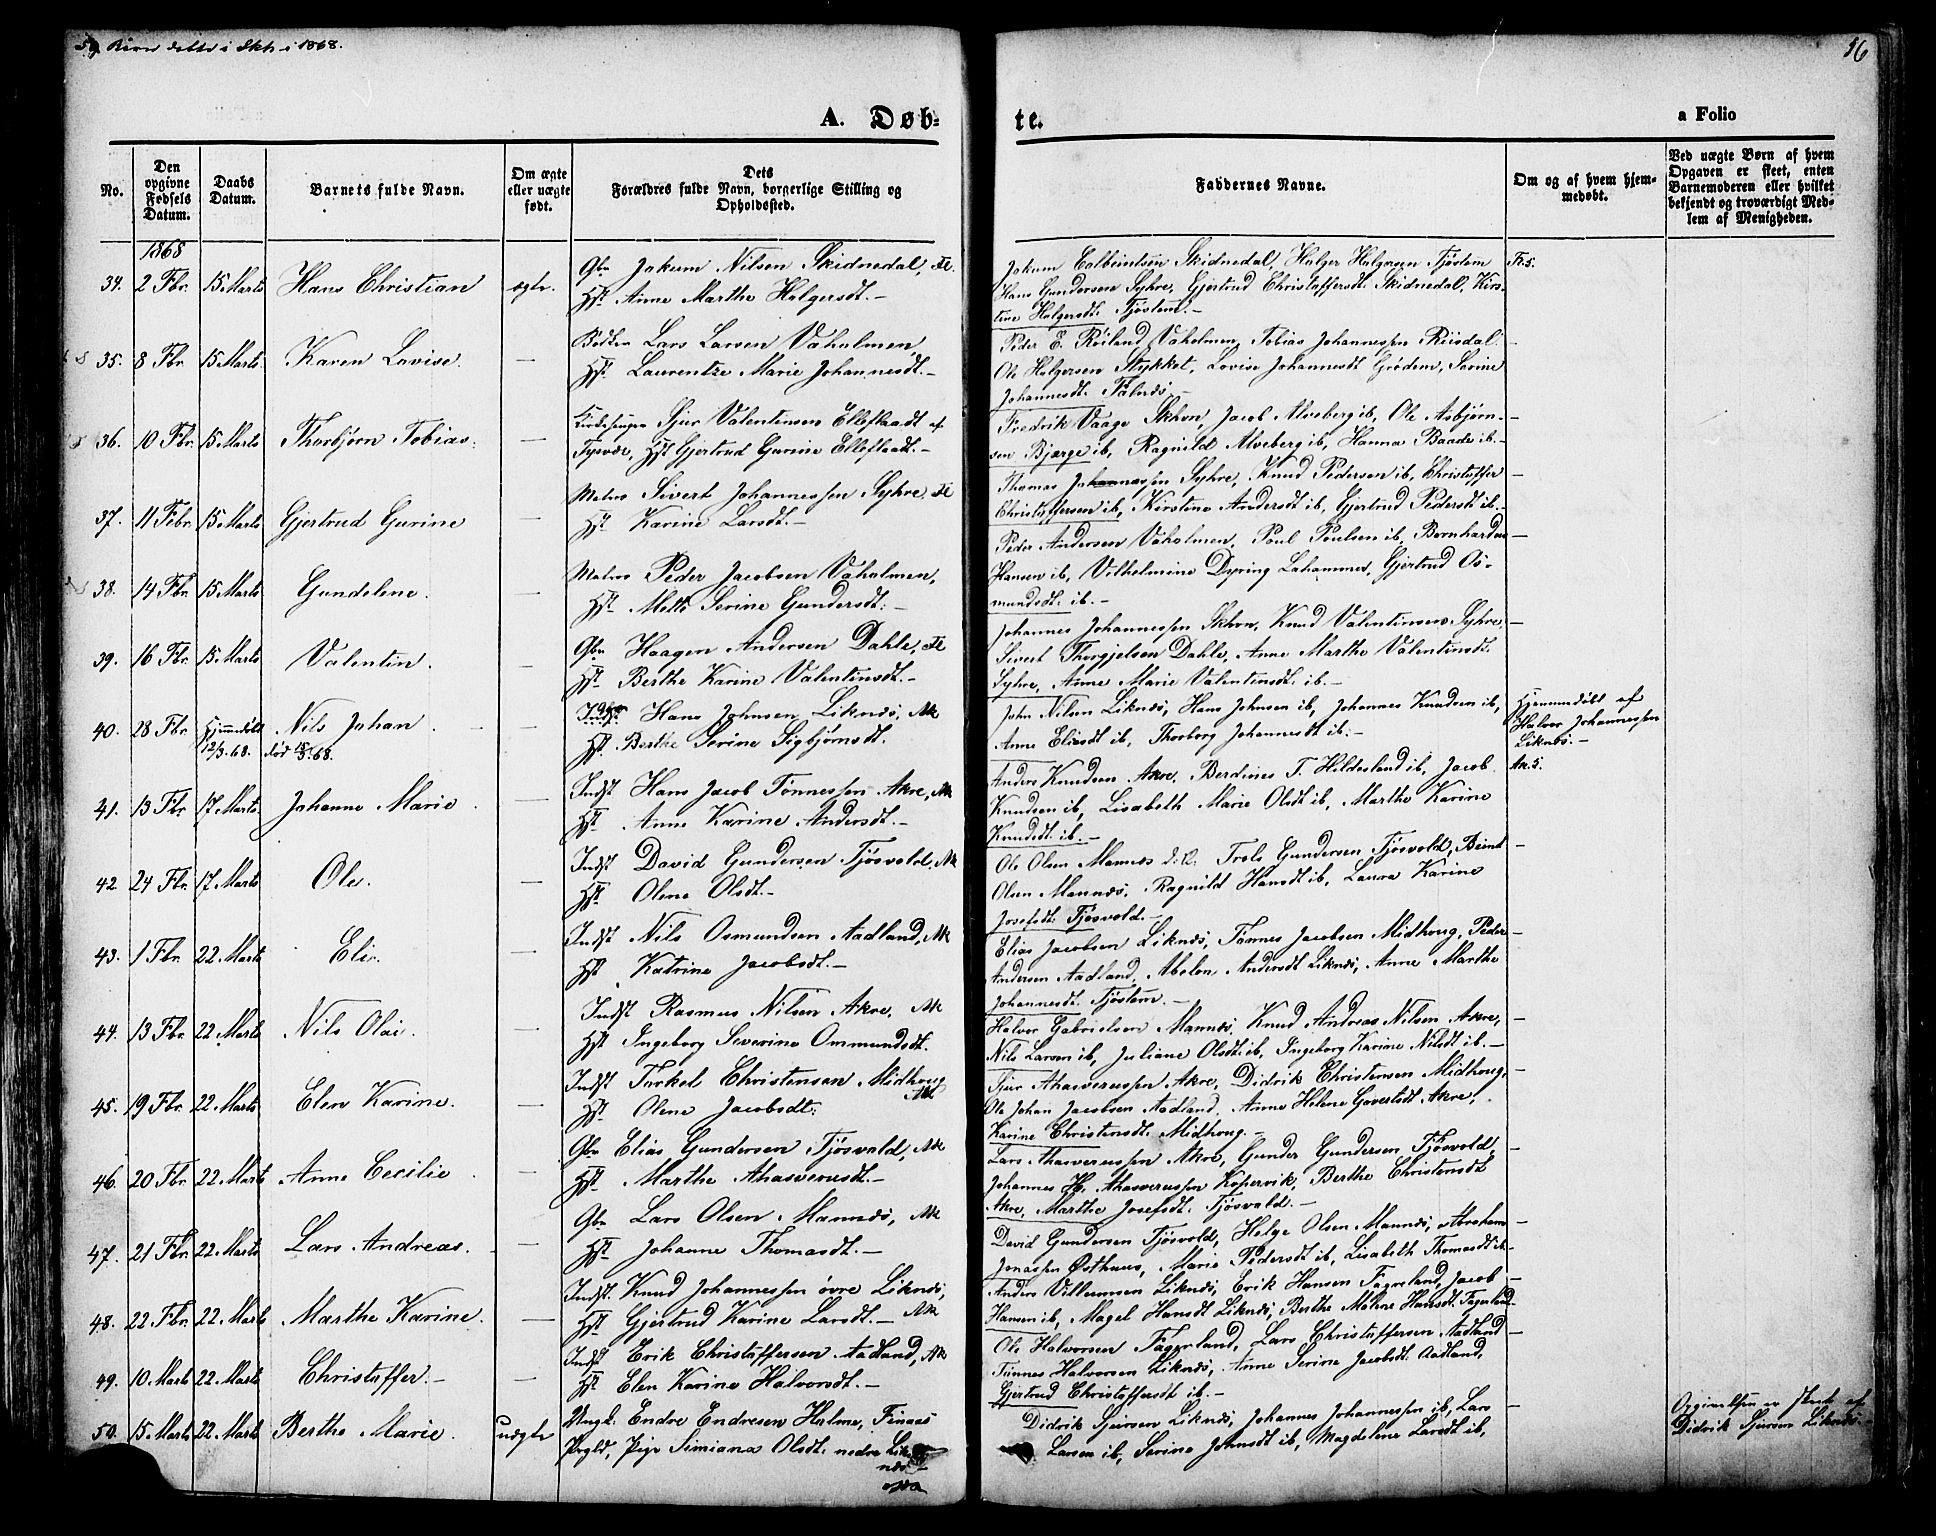 Børn døbte i Skh i 1868.
16
A. Døb-
te.
a Folio
No.
Den opgivne Fødsels Datum.
Daabs Datum.
Barnets fulde Navn.
Om ægte eller uægte født.
Dets Forældres fulde Navn, borgerlige Stilling og Opholdssted.
Faddernes Navne.
Om og af hvem hjemmedøbt.
Ved uægte Børn af hvem Opgaven er skeet, enten Barnemoderen eller hvilket bekjendt og troværdigt Medlem af Menigheden.
1868
34. 2 Fbr. 15 Marts Hans Christian ægte. Gbr Jakum Nilsen Skidnedal, Fl.
Hst. Anne Marthe Holgersdt.-
Jakum Colbeintsen Skidnedal, Holger Holgersen Tjøstem
Hans Gundersen Syhre, Gjertrud Christoffersdt. Skidnedal, Kirs-
tine Holgersdt. Tjøstem.-
35. 8 Fbr. 15 Marts Karen Lovise. — Lars Larsen Vaholmen
Hst. Laurentze Marie Johannesdt.-
Peder E. Røiland Vaholmen, Tobias Johannessen Riisdal.
Ole Holgersen Stykket, Lovise Johannesdt Grødem, Serine
Johannesdt. Falnæs.
36. 10 Fbr. 15 Marts Thorbjørn Tobias. — Kirkesanger Sjur Valentinsen Elleflaadt af
Tysvær, Hst Gjertrud Gurine Elleflaadt.-
Fredrik Vaage Skhvn, Jacob Alveberg ib, Ole Asbjørn-
sen Bjørge ib, Ragnild Alveberg ib, Hanna Baade ib.-
37. 11 Febr. 15 Marts Gjertrud Gurine — Matros Sivert Johannessen Syhre, Fl
Hst. Karine Larsdt.-
Thomas Johannessen Syhre, Knud Pedersen ib, Christoffer
Christoffersen ib, Kirstine Andersdt ib, Gjertrud Pedersdt ib.-
38. 14 Fbr. 15 Marts Gundelene. — Matros Peder Jacobsen Vaholmen,
Hst. Mette Serine Gundersdt.-
Peder Andersen Vaholmen, Poul Poulsen ib, Bernhardus
Hansen ib, Vilhelmine Dyring Lahammer, Gjertrud Os-
mundsdt. ib.-
39. 16 Fbr. 15 Marts Valentin. — Gbr Haagen Andersen Dahle, Fl
Hst. Berthe Karine Valentinsdt.-
Johannes Johannessen Skhvn, Knud Valentinsen Syhre,
Sivert Thorgjelsen Dahle, Anne Marthe Valentinsdt.
Syhre, Anne Marie Valentinsdt. ib.-
40. 28 Fbr. Hjemmedøbt 12/3.68. Nils Johan død 15/3.68. — Hans Johnsen Liknæs, Ak
Hst. Berthe Serine Sigbjørnsdt.
John Nilsen Liknæs, Hans Johnsen ib, Johannes Knudsen ib,
Anne Eliasdt ib, Thorborg Johannesdt ib.-
Hjemmedøbt af
Halvor Johannessen
Liknæs.-
41. 13 Fbr. 17 Marts Johanne Marie — Indst Hans Jacob Tønnessen Akre, Ak
Hst. Anne Karine Andersdt.-
Anders Knudsen Akre, Berdines T. Hildesland ib, Jacob
Knudsen ib, Lisabeth Marie Olsdt ib, Marthe Karine
Knudsdt. ib.-
42 24 Fbr. 17 Marts Ole. — Indst David Gundersen Tjøsvold, Ak
Hst. Olene Olsdt.-
Ole Olsen Mannæs d.Æ. Trols Gundersen Tjøsvold, Beint
Olsen Mannæs, Ragnild Hansdt ib, Laura Karine
Josefsdt. Tjøsvold.-
43. 1 Fbr. 22 Marts Eli. — Indst Nils Osmundsen Aadland, Ak
Hst. Katrine Jacobsdt.-
Elias Jacobsen Liknæs, Tønnes Jacobsen Midhoug, Peder
Andersen Aadland, Abelone Andersdt Liknæs, Anne Marthe
Johannesdt. Tjøstem.-
44. 13 Fbr. 22 Marts Nils Olai. — Indst Rasmus Nilsen Akre, Ak
Hst Ingeborg Severine Ommundsdt.
Halvor Gabrielsen Mannæs, Knud Andreas Nilsen Akre,
Nils Larsen ib, Juliane Olsdt. ib, Ingeborg Karine Nilsdt ib.-
45. 19 Fbr. 22 Marts Elen Karine. — Indst Torkel Christensen Midhoug Ak
Hst. Olene Jacobsdt.
Sjur Ahasverussen Akre, Didrik Christensen Midhoug,
Ole Johan Jacobsen Aadland, Anne Helene Govertsdt Akre,
Karine Christensdt. Midhoug.-
46. 20 Fbr. 22 Marts Anne Cecilie — Gbr Elias Gundersen Tjøsvold, Ak
Hst. Marthe Ahasverusdt.-
Lars Ahasverussen Akre, Gunder Gundersen Tjøsvold,
Johannes H. Ahasverussen Kopervik, Berthe Christensdt
Akre, Marthe Josefsdt. Tjøsvold.-
47. 21 Fbr. 22 Marts Lars Andreas. — Gbr Lars Olsen Mannæs, Ak
Hst. Johanne Thomasdt.-
David Gundersen Tjøsvold, Helge Olsen Mannæs, Abraham
Jonassen Østhuus, Marie Pedersdt ib, Lisabeth Thomasdt ib.
48. 22 Fbr. 22 Marts Marthe Karine. — Indst. Knud Johannessen øvre Liknæs,
Hst. Gjertrud Karine Larsdt.- Ak
Anders Villumsen Liknæs, Erik Hansen Fagerland, Jacob
Hansen ib, Magel Hansdt Liknæs, Berthe Malene Hansdt. Fagerland
49. 10 Marts 22 Marts Christoffer.- — Indst Erik Christoffersen Aadland, Ak
Hst. Elen Karine Halvorsdt.-
Ole Halvorsen Fagerland, Lars Christoffersen Aadland
Tønnes Halvorsen Liknæs, Anne Serine Jacobsdt. Aadland,
Gjertrud Christoffersdt ib.-
50. 15 Marts 22 Marts Berthe Marie. uægte Ungk. Endre Endresen Halme, Finnaas
Prgld, Pige Simiana Olsdt. nedre Lik-
næs
Didrik Sjursen Liknæs, Johannes Johannessen ib, Lars
Larsen ib, Serine Johnsdt ib, Magdelene Larsdt ib,
Opgivelsen er skeet af
Didrik Sjursen Liknæs.-